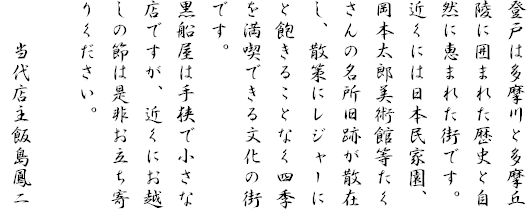 登戸は多摩川と多摩丘
陵に囲まれた歴史と自
然に恵まれた街です。
近くには日本民家園、
岡本太郎美術館等たく
さんの名所旧跡が散在
し、散策にレジャーに
と飽きることなく四季
を満喫できる文化の街
です。
黒船屋は手狭で小さな
店ですが、近くにお越
しの節は是非お立ち寄
りください。
当代店主飯島鳳二